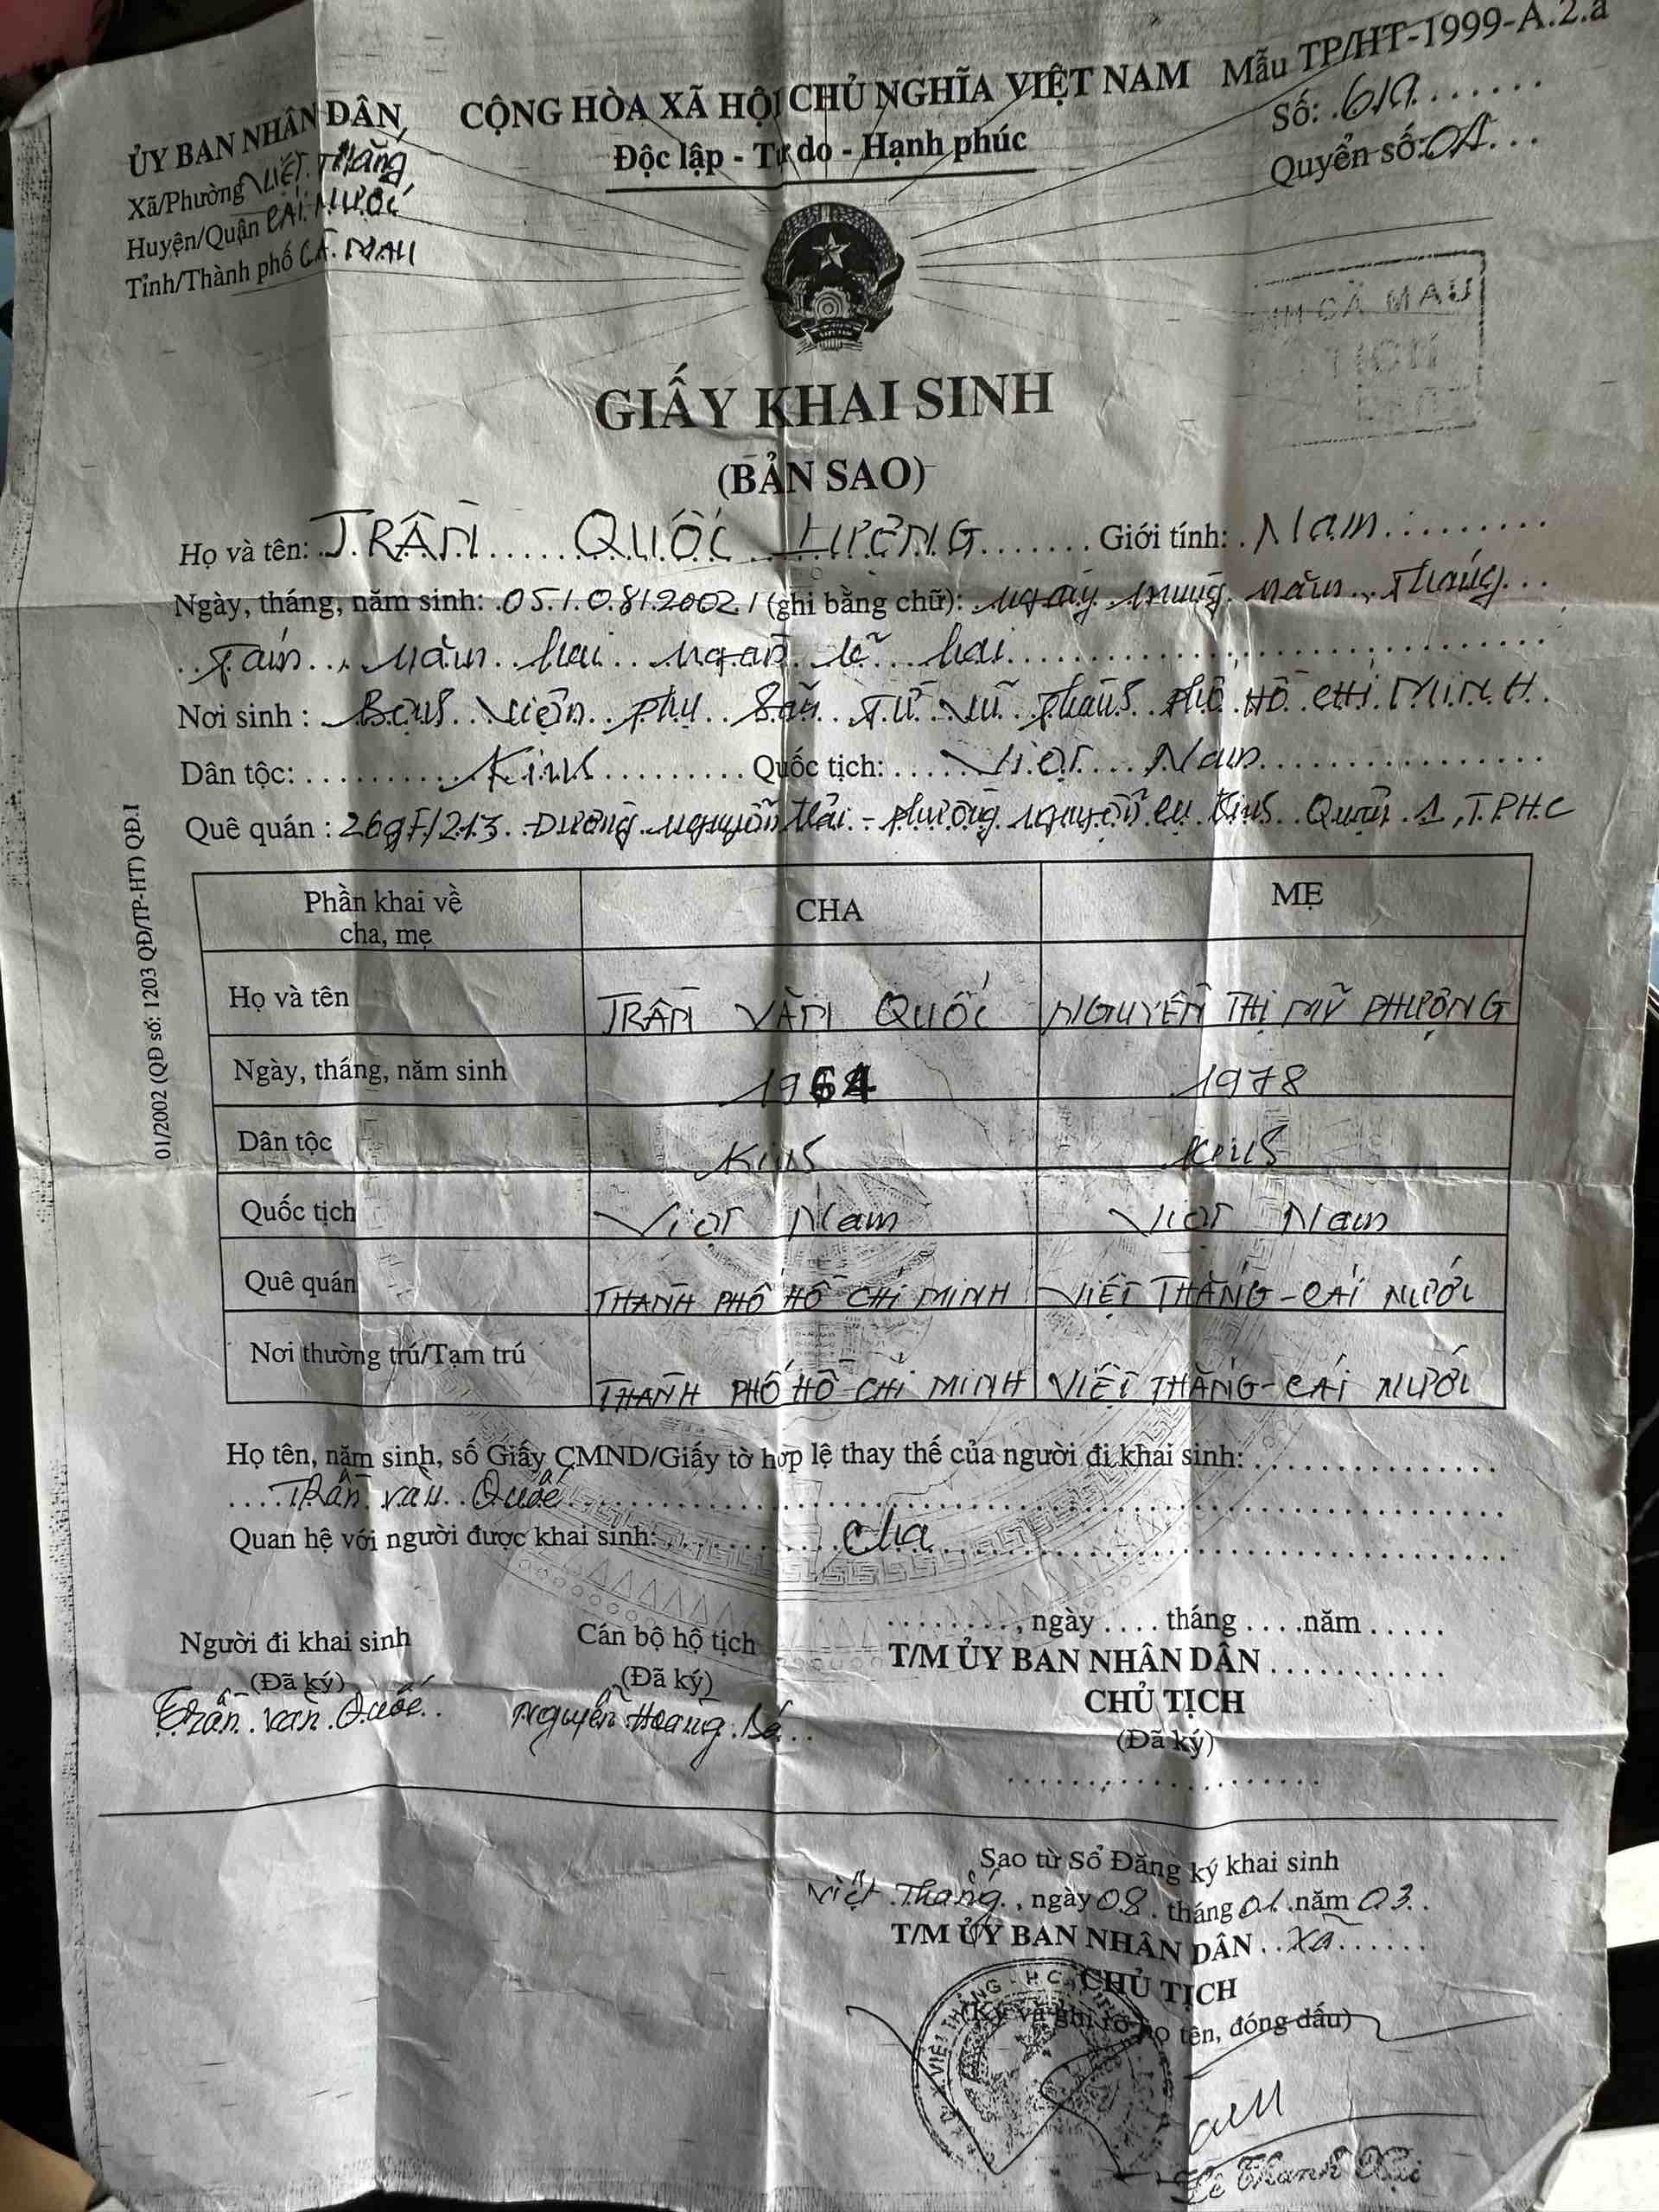 CỘNG HÒA XÃ HỘI CHỦ NGHĨA VIỆT NAM
Độc lập - Tự do - Hạnh phúc
Mẫu TP/HT-1999-A.2.a
Số: 619
Quyển số: 01
ỦY BAN NHÂN DÂN
Xã/Phường VIỆT Thắng
Huyện/Quận CÁI NƯỚC
Tỉnh/Thành phố CÀ MAU
GIẤY KHAI SINH
(BẢN SAO)
Họ và tên: TRẦN QUỐC Giới tính: Nam
Ngày, tháng, năm sinh: 05/08/2002 / (ghi bằng chữ): ngày mùng năm, tháng
tám, năm hai ngàn lẽ hai
Nơi sinh : Bệnh viện phụ Sản TỪ VŨ thành phố HỒ CHÍ MINH.
Dân tộc: Kinh Quốc tịch: Việt Nam
Quê quán : Đường nguyễn Trãi - phường nguyễn cư Kinh Quận 1, T.P.H.C
Phần khai về cha, mẹ CHA MẸ
Họ và tên TRẦN VĂN QUỐC NGUYỄN THỊ MỸ PHƯỢNG
Ngày, tháng, năm sinh 1964 1978
Dân tộc Kinh Kinh
Quốc tịch Việt Nam Việt Nam
Quê quán THÀNH PHỐ HỒ CHÍ MINH VIỆT THẮNG - CÁI NƯỚC
Nơi thường trú/Tạm trú THÀNH PHỐ HỒ CHÍ MINH VIỆT THẮNG - CÁI NƯỚC
01/2002 (QĐ số: 1203 QĐ/TP-HT) QĐ.I
Họ tên, năm sinh, số Giấy CMND/Giấy tờ hợp lệ thay thế của người đi khai sinh:
Trần văn Quốc
Quan hệ với người được khai sinh: cha
......, ngày .... tháng ....năm .....
Người đi khai sinh Cán bộ hộ tịch T/M ỦY BAN NHÂN DÂN
(Đã ký) (Đã ký) CHỦ TỊCH
Trần văn Quốc Nguyễn Hoàng (Đã ký)
Sao từ Sổ Đăng ký khai sinh
Việt Thắng, ngày 08 tháng 01 năm 03
T/M ỦY BAN NHÂN DÂN xã
CHỦ TỊCH
(Ký và ghi rõ họ tên, đóng dấu)
Lê Thanh